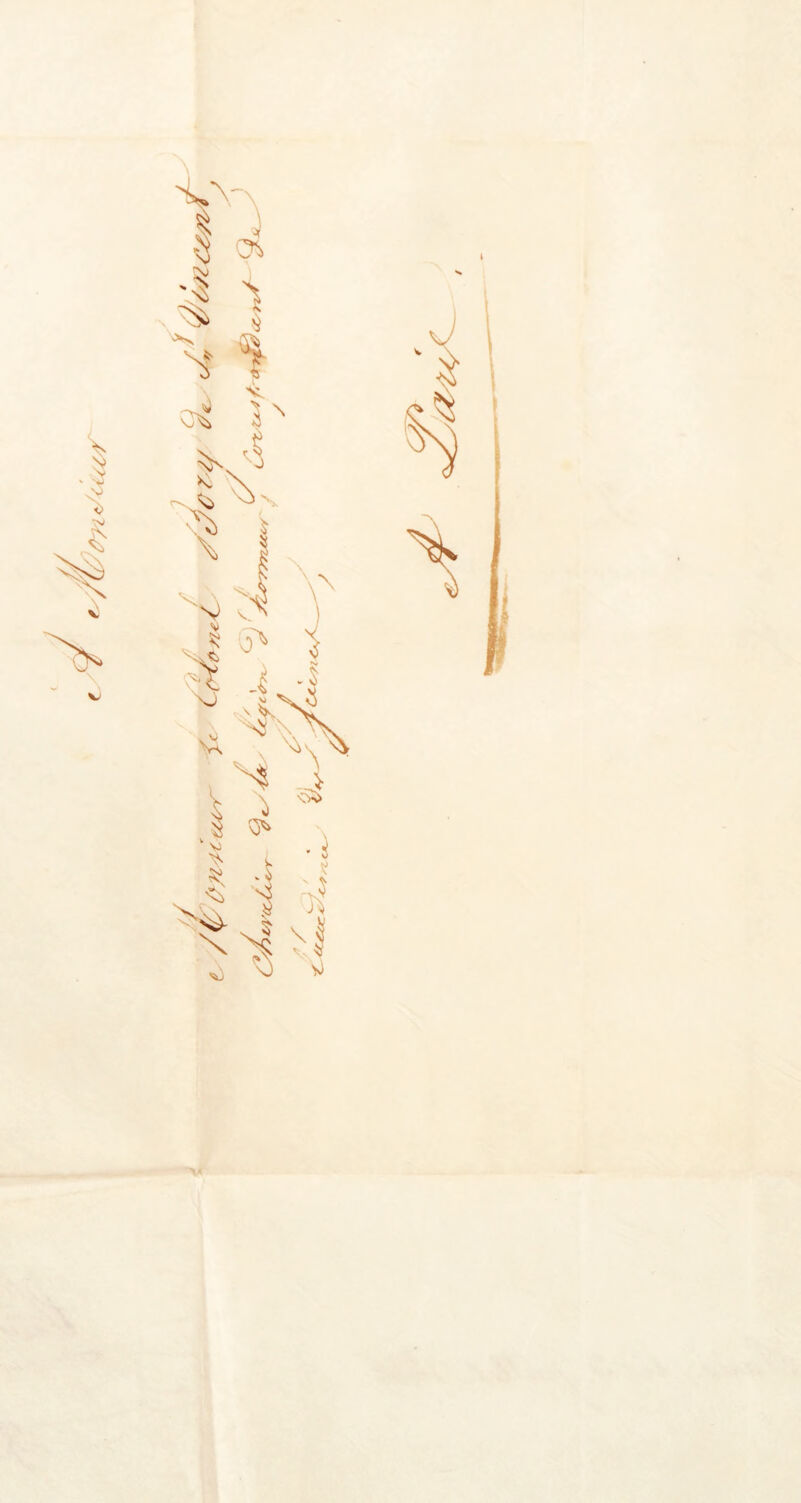 A Monsieur
Monsieur le Colonel Bory de St Vincent,
Chevalier de la légion d'honneur, Correspondant de
L'académie des sciences,
A Paris.